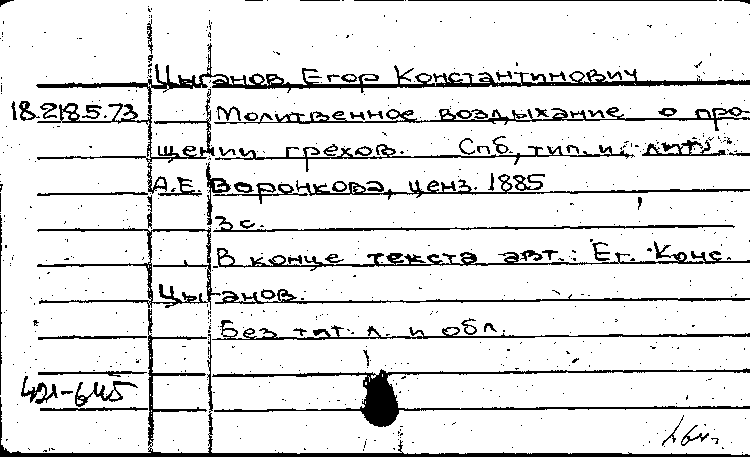 Цыганов, Егор Константинович
18.218.5.73 Молитвенное воздыхание о про-
щении грехов. Спб, тип. и лит.
А.Е. Воронкова, ценз. 1885
3 с.
В конце текста авт.: Ег. Конс.
Цыганов.
Без тит. л. и обл.